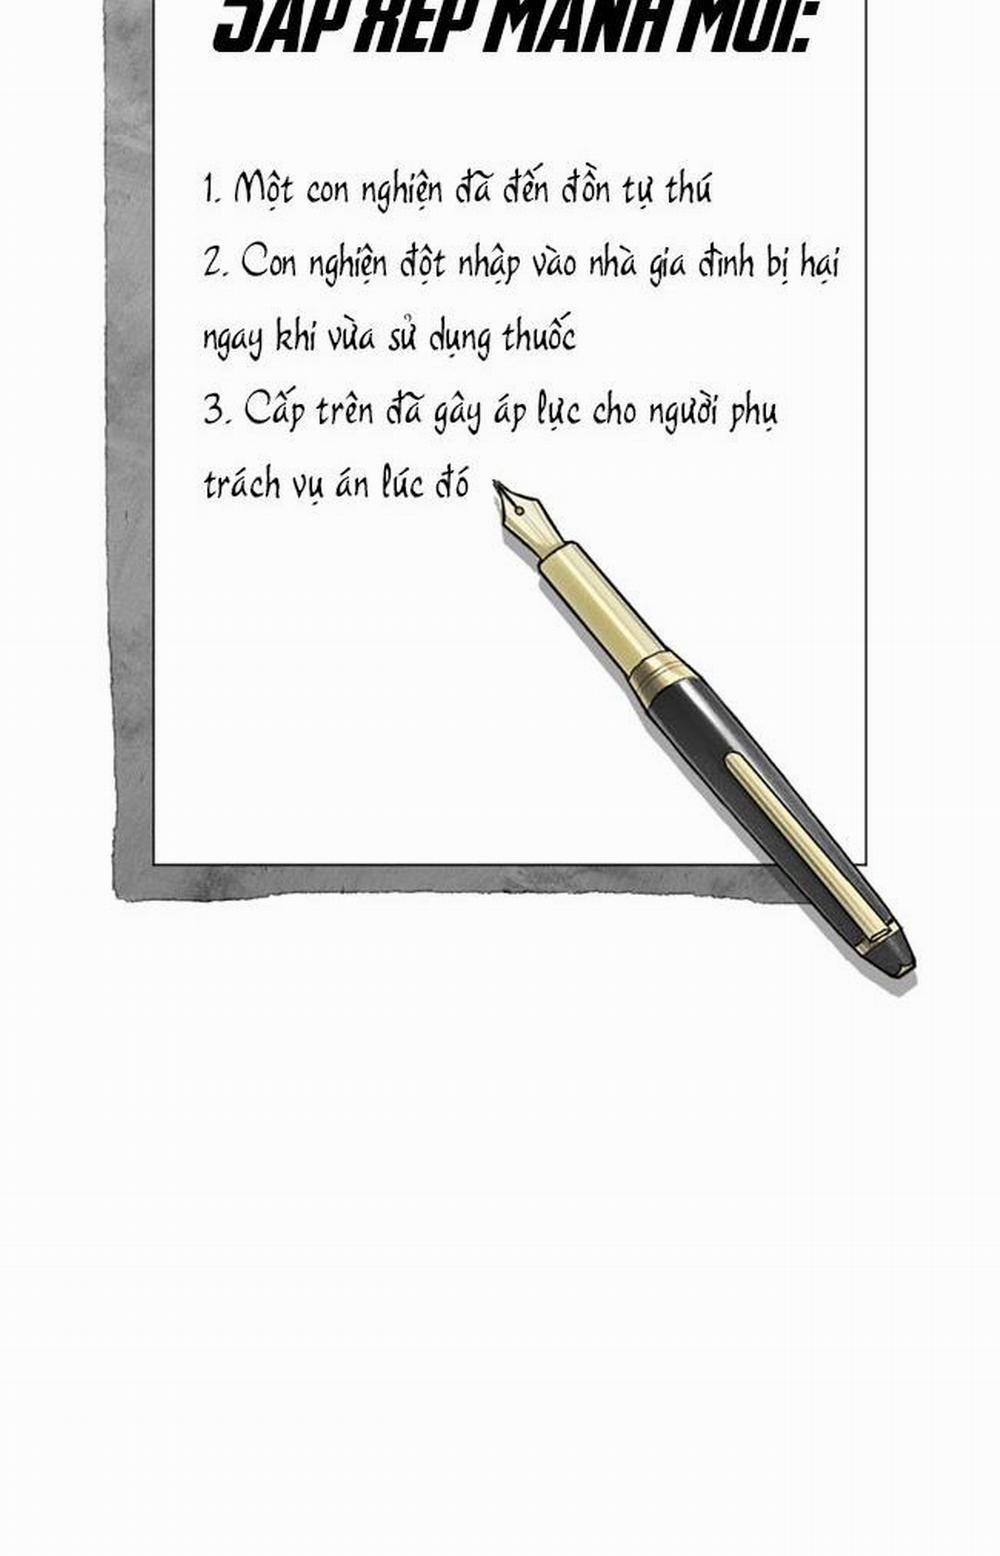 SẮP XẾP MANH MỐI:
1. Một con nghiện đã đến đồn tự thú
2. Con nghiện đột nhập vào nhà gia đình bị hại
ngay khi vừa sử dụng thuốc
3. Cấp trên đã gây áp lực cho người phụ
trách vụ án lúc đó